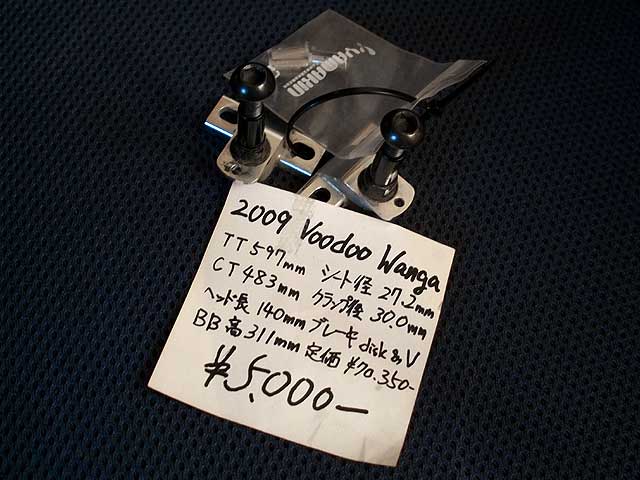 2009 Voodoo Wanga
TT597mm シート径 27.2mm
CT483mm クランプ径 30.0mm
ヘッド長 140mm ブレーキ disk & V
BB高311mm 定価 ¥70.350-
¥5.000-